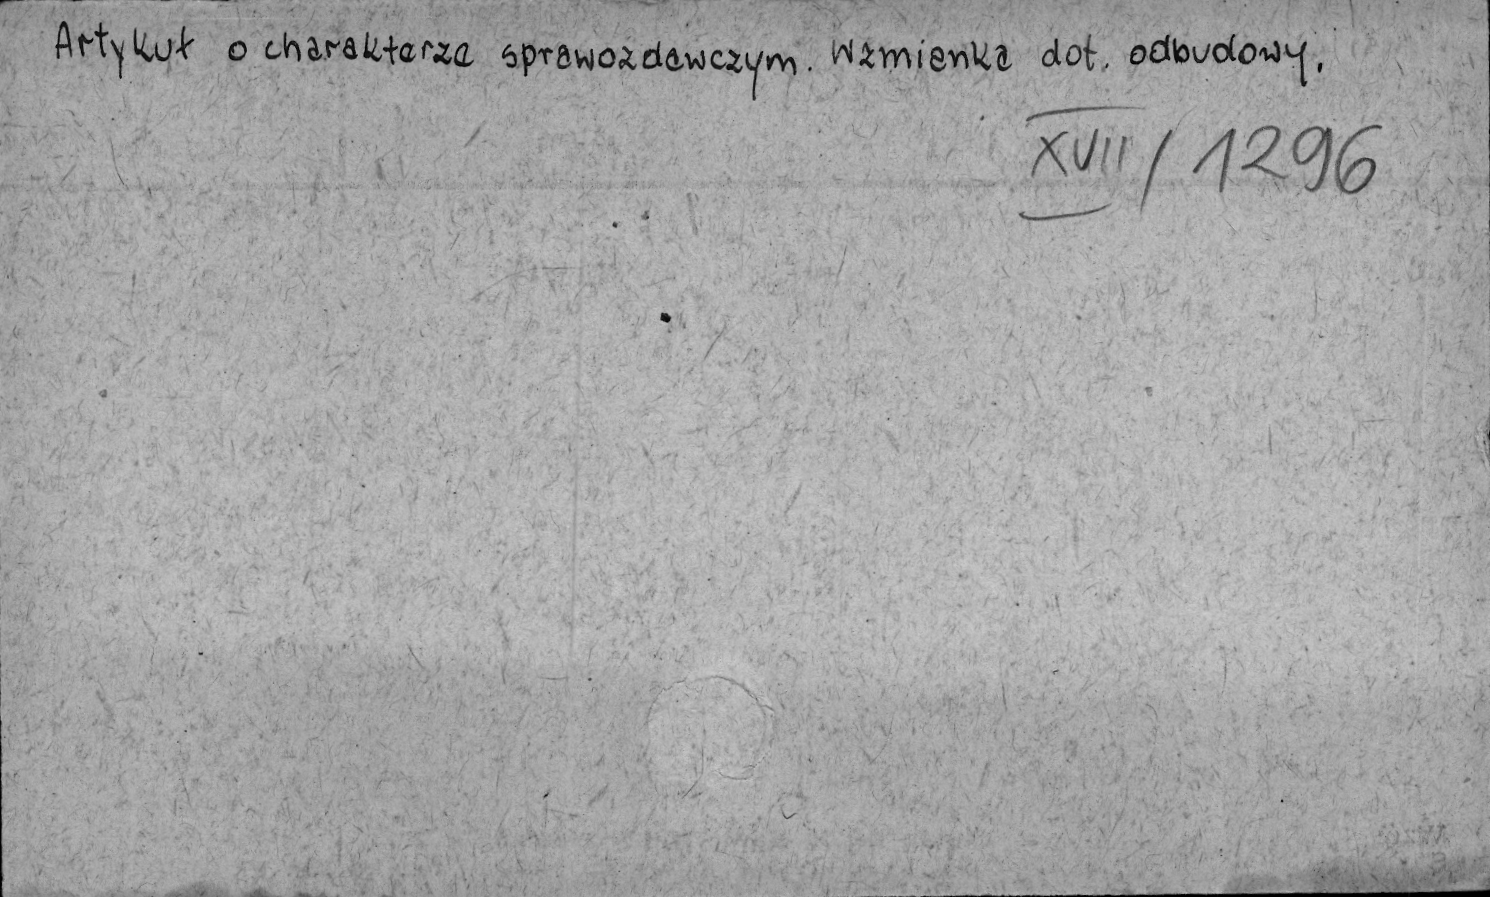 Artykuł o charakterze sprawozdawczym. Wzmianka dot. odbudowy.
XVII / 1296